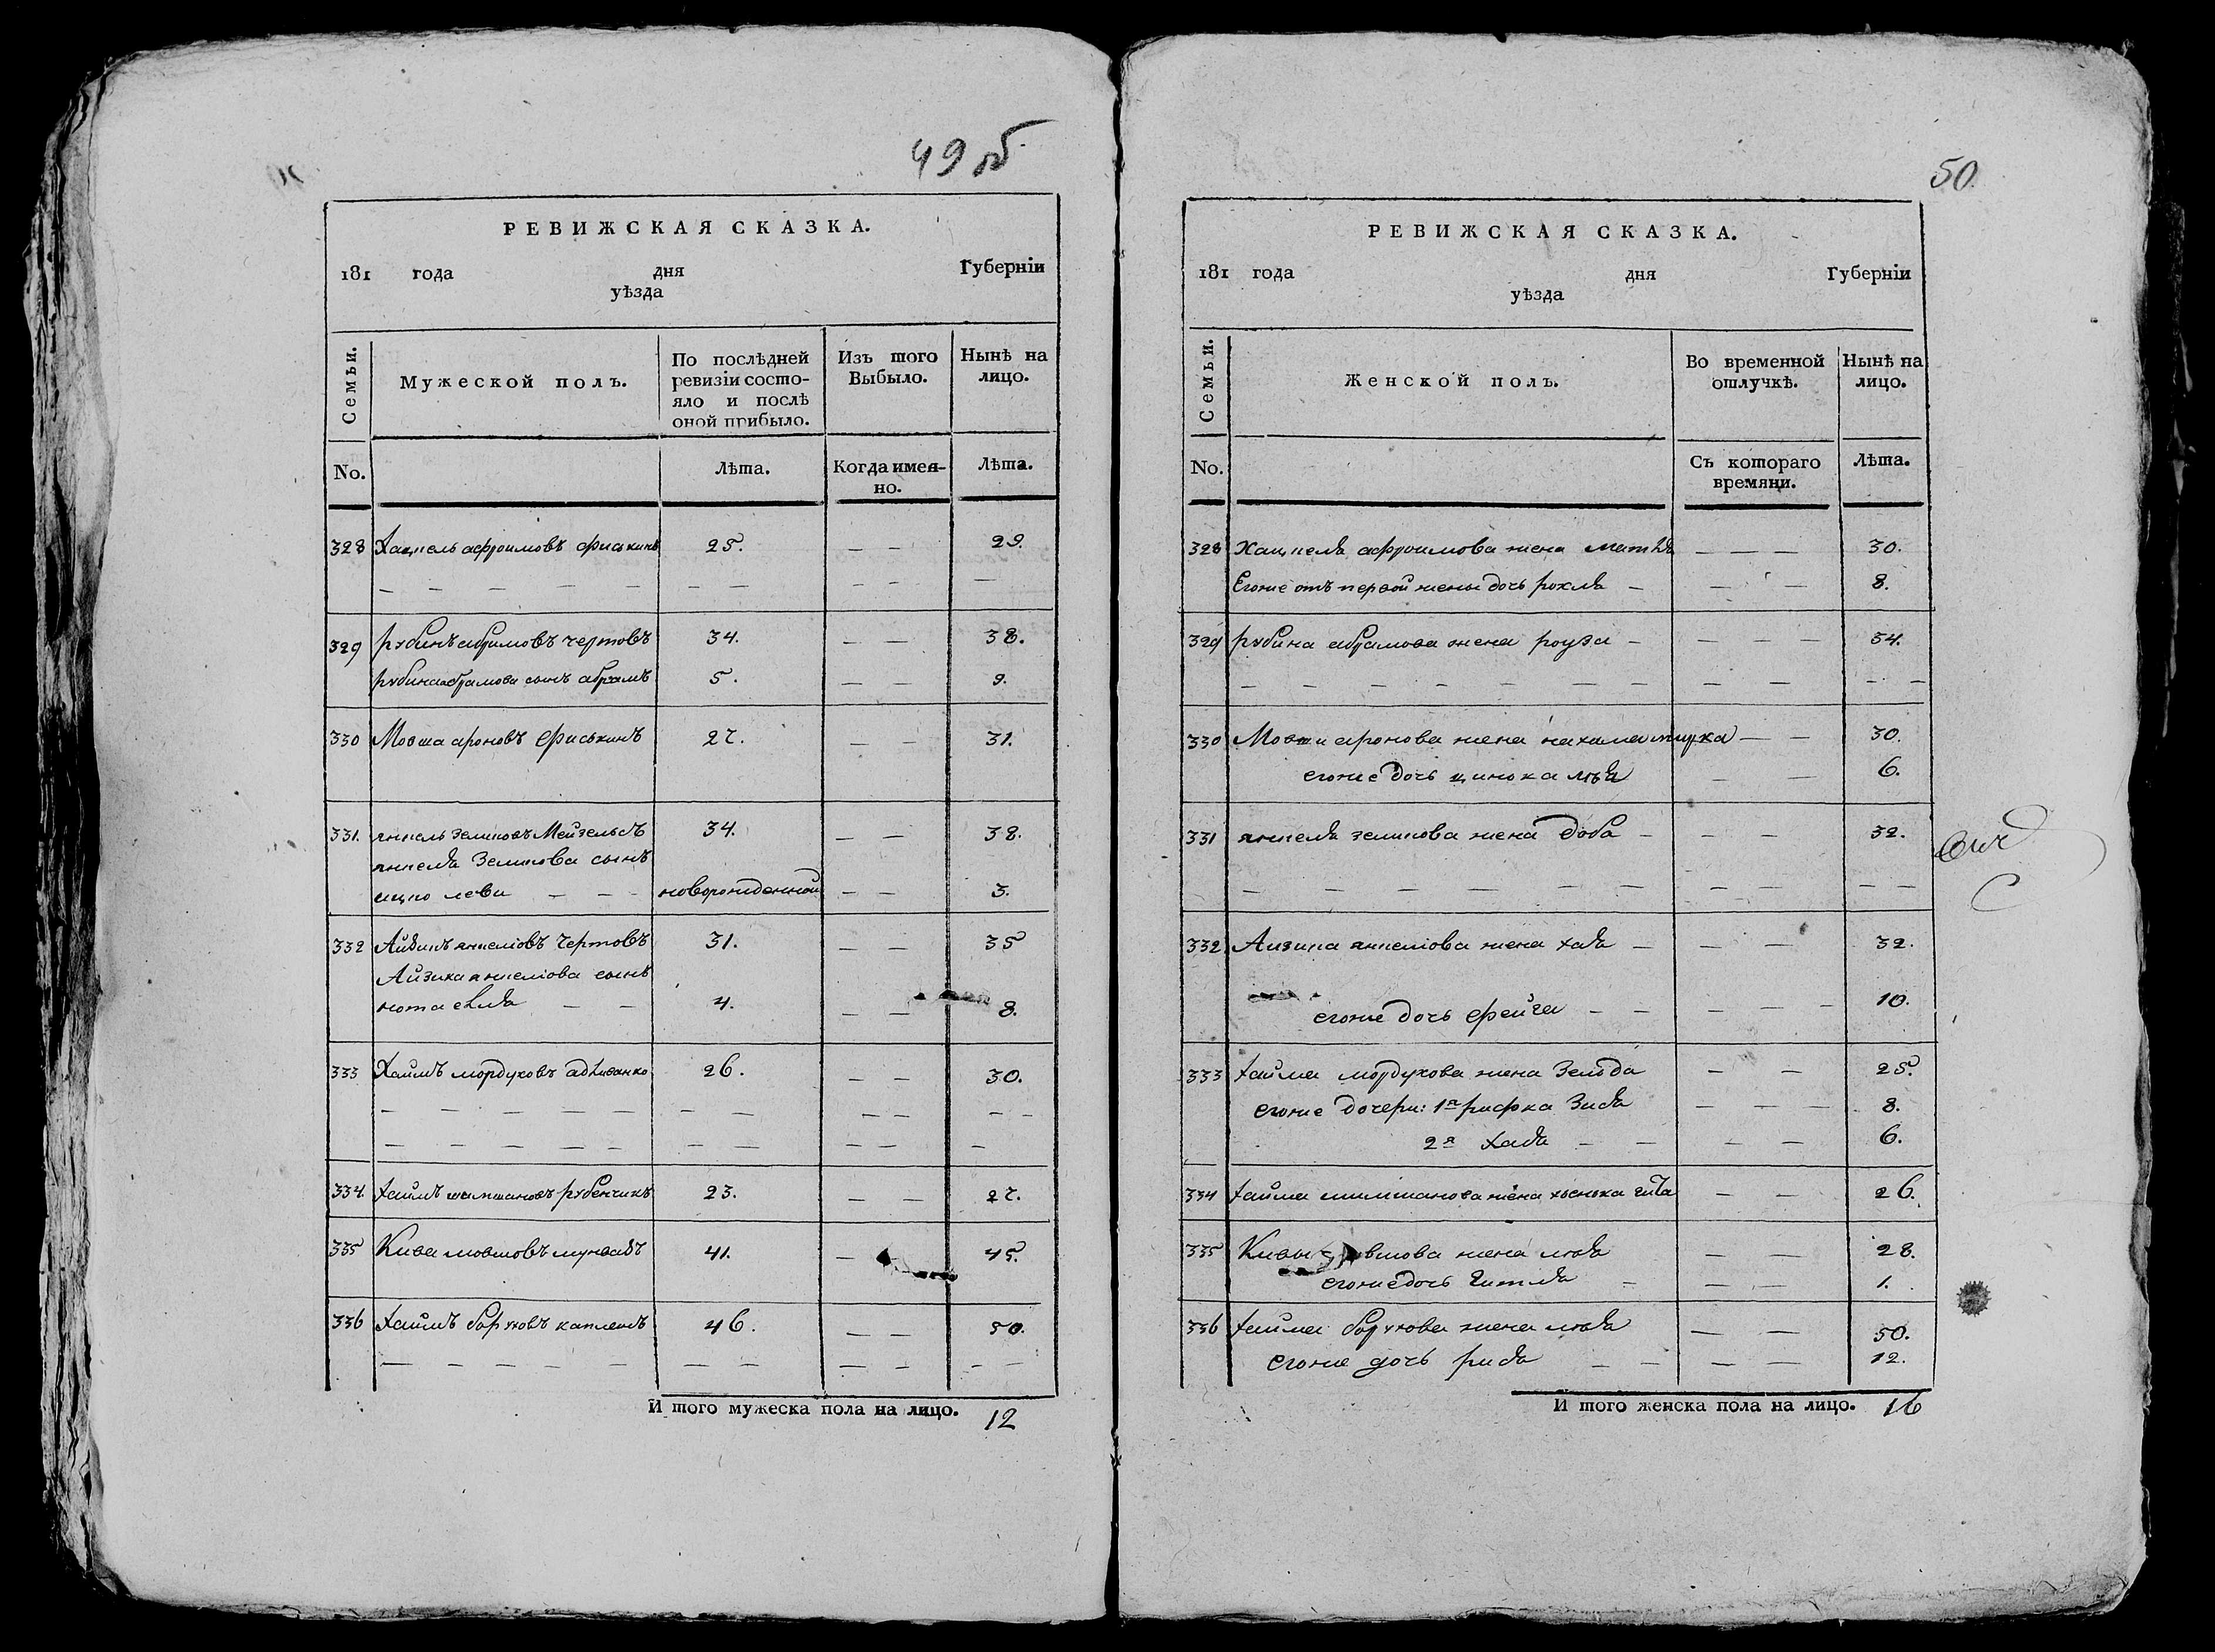 49 об
РЕВИЖСКАЯ СКАЗКА.
181 года дня Губерніи
уѣзда
Семьи. Мужеской полъ. По послѣдней ревизіи состояло и послѣ оной прибыло. Изъ того Выбыло. Нынѣ на лицо.
No. Лѣта. Когда имея-но. Лѣта.
328 Хацкель афроимовъ фиськинъ 25. — — 29.
329 рубинъ абрамовъ чертовъ 34. — — 38.
рубина абрамова сынъ абрамъ 5. — — 9.
330 Мовша ароновъ фиськинъ 27. — — 31.
331. янкель зеликовъ Мейзельсъ 34. — — 38.
янкеля Зеликова сынъ
ицко леви — — — новорожденной — — 3.
332 Айзикъ янкеліовъ чертовъ 31. — — 35
Айзика янкеліова сынъ
нота — — 4. — — 8.
333 Хаимъ мордуховъ 26. — — 30.
334. хаимъ шимшановъ рубенчикъ 23. — — 27.
335 Кива мовшовъ 41. — 45.
336 Хаимъ боруховъ капланъ 46. — — 50.
И того мужеска пола на лицо. 12
50.
РЕВИЖСКАЯ СКАЗКА.
181 года дня Губерніи
уѣзда
Семьи. Женской полъ. Во временной отлучкѣ. Нынѣ на лицо.
No. Съ котораго времяни. Лѣта.
328 Хацкеля афроимова жена — — — 30.
Егоже отъ первой жены дочь рохля — — — 8.
329 рубина абрамова жена роуза — — — — 34.
330 Мовши аронова жена нахама — — 30.
егоже дочь — — 6.
331 янкеля зеликова жена доба — — — 32.
332 Айзика янкеліова жена хая — — — 32.
егоже дочь фейга — — — — — 10.
333 хаима мордухова жена Зелда — — 25.
егоже дочери: 1я рифка Зися — — — 8.
2я хая — — — — 6.
334 хаима шимшанова жена — — 26.
335 Кивы мовшова жена — — 28.
егоже дочь Гитля — — — 1.
336 хаима борухова жена — — 50.
егоже дочь — — — — 12.
И того женска пола на лицо. 16